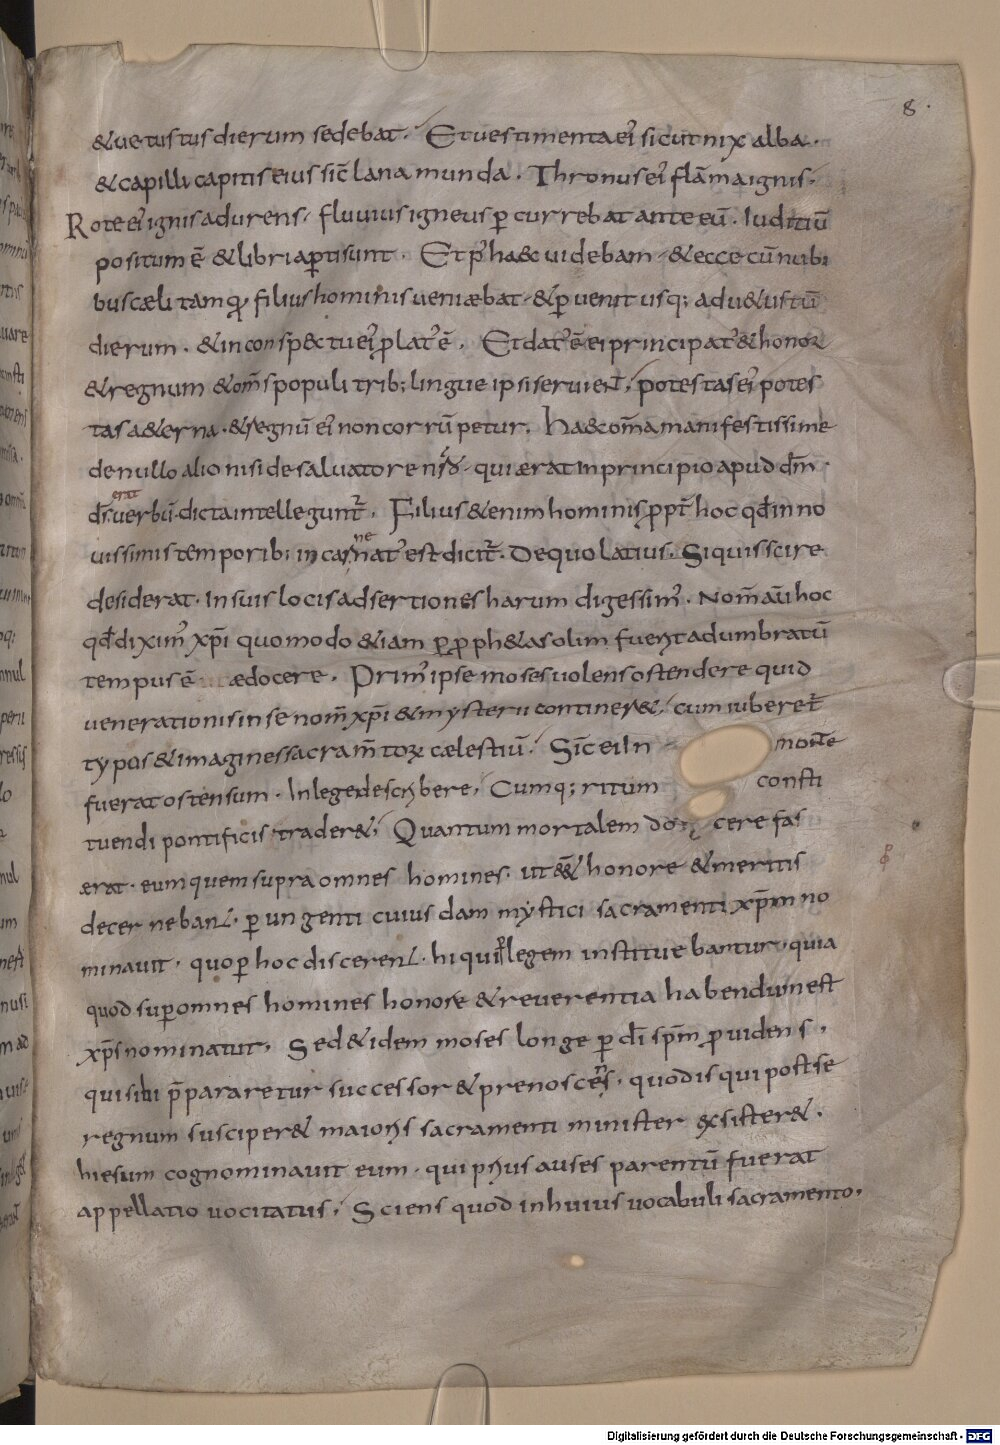 8.
& uetustus dierum sedebat. Et uestimenta ei᾽ sicut nix alba.
& capilli capitis eius sic̄ lana munda. Thronus ei᾽ flāma ignis.
Rote ei᾽ ignis adurens. fluuius igneus ꝑcurrebat ante eū. Iuditiū
positum ē & libri aꝑti sunt. Et p᾽ haec uidebam & ecce cū nubi
bus cæli tamq̄ filius hominis ueniæbat & ꝑuenit usq; ad u&ustū
dierum. & in consp&tu ei᾽ ꝓlat᾽ ē. Et dat᾽ ē ei principat᾽ & honor
& regnum & om̄s populi trib; lingue ipsi seruien̄t. potestas ei᾽ potes
tas a&erna. & regnū ei᾽ non corrūpetur. Ha&c om̄a manifestissime
de nullo alio nisi de saluatore nr̄o. qui ærat in principio apud dm̄.
ds̄ erat uerbū. dicta intelleguntr̄. Filius &enim hominis ꝓpt̄ hoc qd̄ in no
uissimis temporib; in carne nat᾽ est dicitr̄. De quo latius. Si quis scire
desiderat. In suis locis adsertiones harum digessim᾽. Nom̄ aū hoc
qd̄ dixim᾽ xp̄i quomodo &iam ꝑ ꝓph&as olim fuerit adumbratū
tempus ē ædocere. Prim᾽ ipse moses uolens ostendere quid
uenerationis in se nom̄ xp̄i & mysterii contineret. cum iuberet
typos & imagines sacram̄torꝝ cælestiū. Sic̄ ei In monte
fuerat ostensum. In lege describere. Cumq; ritum consti
tuendi pontificis trader&. Quantum mortalem do cere fas
ærat. eum quem supra omnes homines. ut honore & meritis
decernebant. ꝑungenti cuiusdam mystici sacramenti xp̄m no
minauit. quo ꝑ hoc discerent. hi qui ꝑ legem instituebantur. quia
quod suꝑ omnes homines honore & reuerentia habendum est
xp̄s nominatur. Sed & idem moses longe ꝑ dī sp̄m ꝓuidens.
quis ibi p̄pararetur successor & prenoscens. quod is qui post se
regnum susciper& maioris sacramenti minister existeret.
hiesum cognominauit eum. qui prius auses parentū fuerat
appellatio uocitatus. Sciens quod in huius uocabuli sacramento.
Digitalisierung gefördert durch die Deutsche Forschungsgemeinschaft - DFG